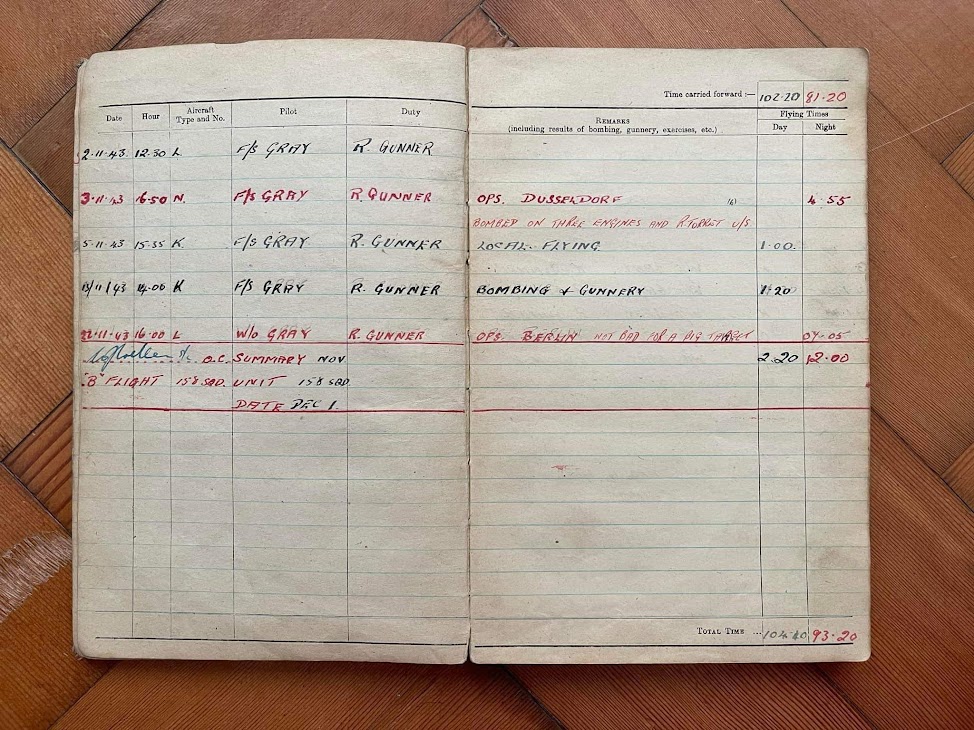 Time carried forward :— 102·20 81·20
Date Hour Aircraft Type and No. Pilot Duty
REMARKS (including results of bombing, gunnery, exercises, etc.) Flying Times Day Night
2·11·43 12·30 L F/S GRAY R. GUNNER
3·11·43 16·50 N. F/S GRAY R. GUNNER OPS. DUSSELDORF (6) 4·55
BOMBED ON THREE ENGINES AND R TURRET U/S
5·11·43 15·35 K F/S GRAY R. GUNNER LOCAL FLYING 1·00.
13/11/43 14·00 K F/S GRAY R. GUNNER BOMBING & GUNNERY 1·20
22·11·43 16·00 L W/O GRAY R. GUNNER OPS. BERLIN NOT BAD FOR A BIG TARGET 07·05
O.C. SUMMARY NOV 2·20 12·00
"B" FLIGHT 158 SQD. UNIT 158 SQD.
DATE DEC 1.
TOTAL TIME ... 104·40 93·20